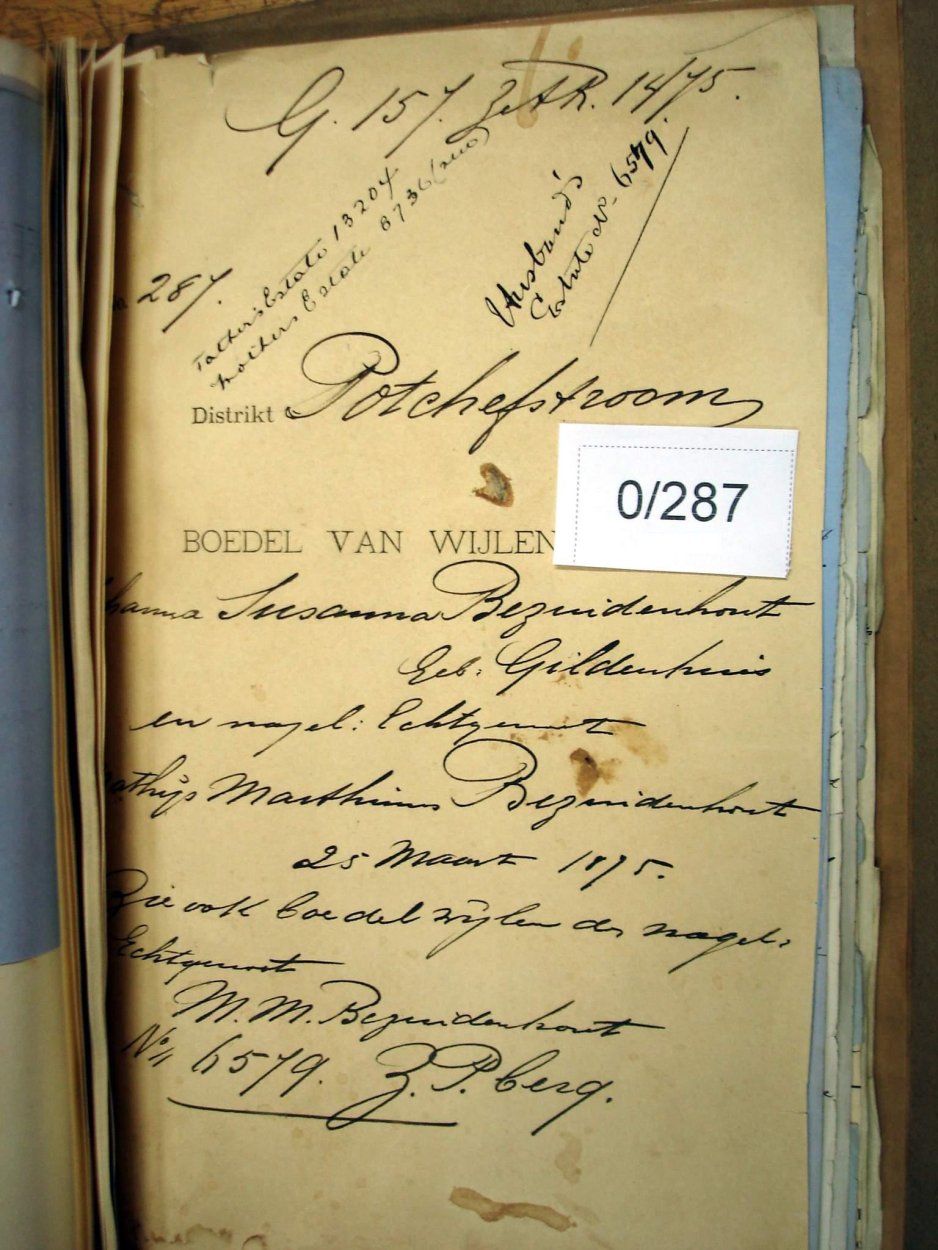 G. 157. Z.A.R. 14/75.
Father's Estate 13204
Mothers Estate 8736
Husband's
Estate No 6579.
287.
Distrikt Potchefstroom
0/287
BOEDEL VAN WIJLEN
hanna Susanna Bezuidenhout
Geb: Gildenhuis
en nagel: Echtgenoot
athijs Marthinus Bezuidenhout
25 Maart 1875.
Zie ook boedel wijlen de nagel:
Echtgenoot
M. M. Bezuidenhout
No 6579. Z. P. berg.